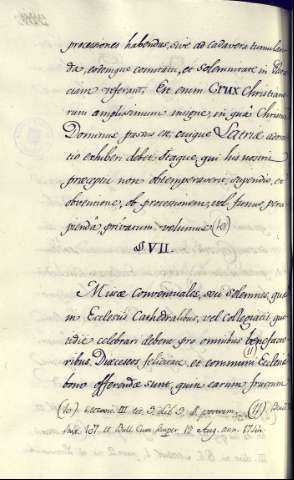 processiones habendas, sive ad cadavera tumulan-
da, eamque comitari, et solemniter in
ciam referant. Est enim Crux Christiano-
rum amplissimum insigne, in quâ Christus
Dominus passus est, cuique Latriæ adora-
tio exhiberi debet. Itaque, qui his nostris
præceptis non obtemperaverit, stipendio, et
obventione, ob processionem, vel funus perci-
piendâ, privatum volumus (10)
§ VII.
Missæ Conventuales, seu solemnes, quæ
in Ecclesiis Cathedralibus, vel collegiatis quo-
tidie celebrari debent pro omnibus benefacto-
ribus, Diœcesis felicitate, et communi Ecclesiæ
bono offerendæ sunt, quin earum fructum
(11)
(10) III. tit. 9. lib. 3. (11) Bened.
Inst. 107. et Bull. Cum semper 19 Aug. ann. 1744.